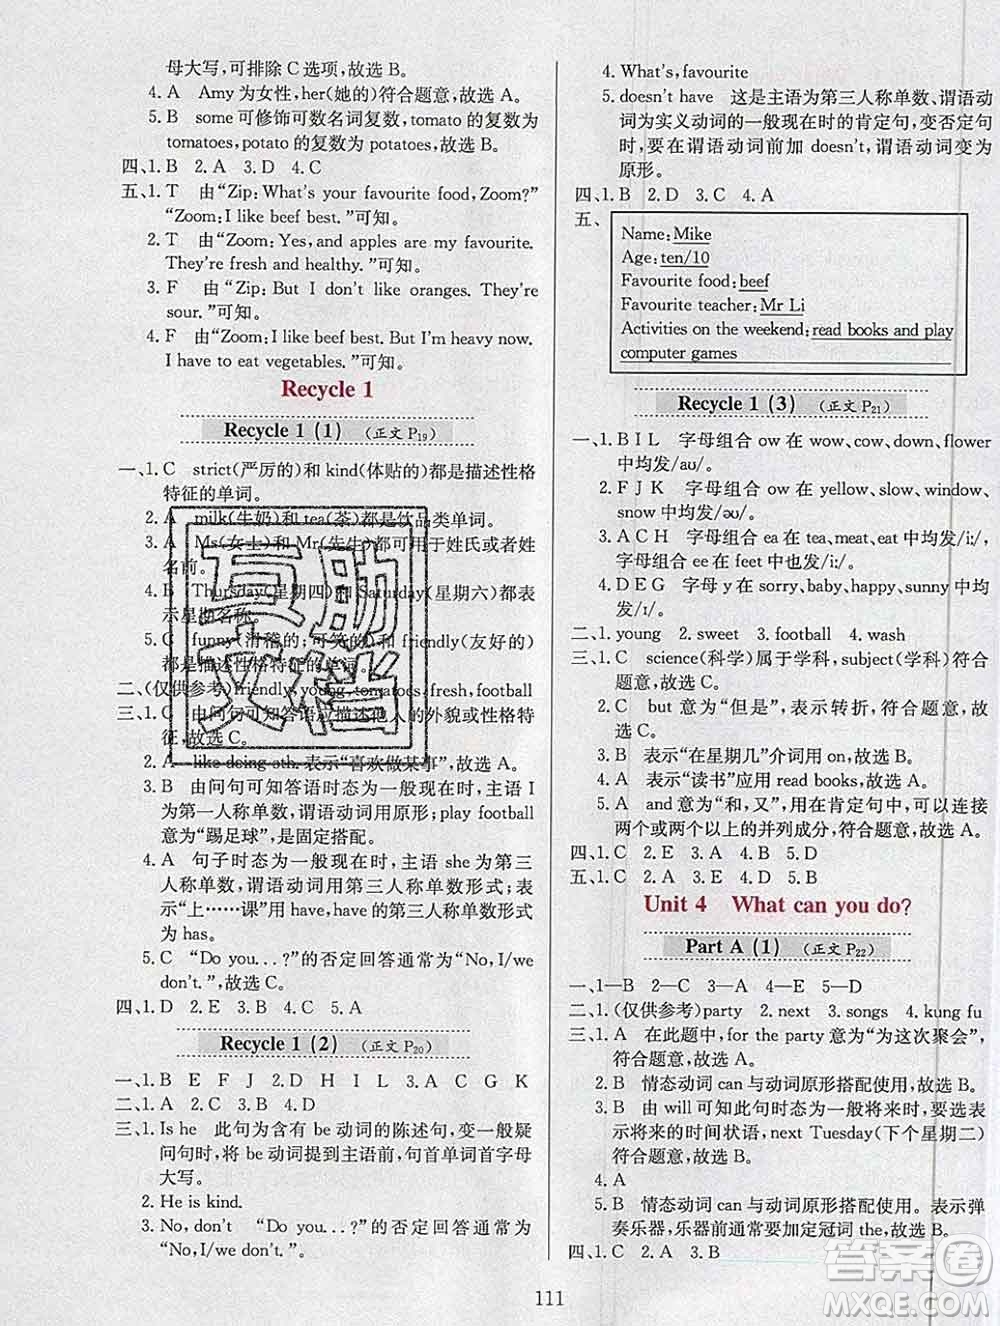 母大写,可排除C选项,故选B。
4. A Amy为女性,her(她的)符合题意,故选A。
5. B some可修饰可数名词复数,tomato的复数为
tomatoes,potato的复数为potatoes,故选B。
四、1. B 2. A 3. D 4. C
五、1. T 由“Zip: What's your favourite food, Zoom?”
“Zoom: I like beef best.”可知。
2. T 由“Zoom: Yes, and apples are my favourite.
They're fresh and healthy.”可知。
3. F 由“Zip: But I don't like oranges. They're
sour.”可知。
4. F 由“Zoom: I like beef best. But I'm heavy now.
I have to eat vegetables.”可知。
Recycle 1
Recycle 1 (1) (正文 P19)
一、1. C strict(严厉的)和kind(体贴的)都是描述性格
特征的单词。
2. A milk(牛奶)和tea(茶)都是饮品类单词。
3. A Ms(女士)和Mr(先生)都可用于姓氏或者姓
名前。
4. B Thursday(星期四)和Saturday(星期六)都表
示星期名称。
5. C funny(滑稽的;可笑的)和friendly(友好的)
都是描述性格特征的单词。
二、(仅供参考)friendly, young, tomatoes, fresh, football
三、1. C 由问句可知答语应描述他人的外貌或性格特
征,故选C。
2. A like doing sth. 表示“喜欢做某事”,故选A。
3. B 由问句可知答语时态为一般现在时,主语I
为第一人称单数,谓语动词用原形;play football
意为“踢足球”,是固定搭配。
4. A 句子时态为一般现在时,主语she为第三
人称单数,谓语动词用第三人称单数形式;表
示“上……课”用have,have的第三人称单数形式
为has。
5. C “Do you...?”的否定回答通常为“No, I/we
don't.”,故选C。
四、1. D 2. E 3. B 4. C 5. A
Recycle 1 (2) (正文 P20)
一、1. B E F J 2. D H I L 3. A C G K
二、1. A 2. C 3. B 4. D
三、1. Is he 此句为含有be动词的陈述句,变一般疑
问句时,将be动词提到主语前,句首单词首字母
大写。
2. He is kind.
3. No, don't “Do you...?”的否定回答通常为
“No, I/we don't.”。
4. What's, favourite
5. doesn't have 这是主语为第三人称单数、谓语动
词为实义动词的一般现在时的肯定句,变否定句
时,要在谓语动词前加doesn't,谓语动词变为
原形。
四、1. B 2. D 3. C 4. A
五、
Name: Mike
Age: ten/10
Favourite food: beef
Favourite teacher: Mr Li
Activities on the weekend: read books and play
computer games
Recycle 1 (3) (正文 P21)
一、1. B I L 字母组合ow在wow, cow, down, flower
中均发/aʊ/。
2. F J K 字母组合ow在yellow, slow, window,
snow中均发/əʊ/。
3. A C H 字母组合ea在tea, meat, eat中均发/iː/,
字母组合ee在feet中也发/iː/。
4. D E G 字母y在sorry, baby, happy, sunny中均
发/ɪ/。
二、1. young 2. sweet 3. football 4. wash
三、1. C science(科学)属于学科,subject(学科)符合
题意,故选C。
2. C but意为“但是”,表示转折,符合题意,故
选C。
3. B 表示“在星期几”介词用on,故选B。
4. A 表示“读书”应用read books,故选A。
5. A and意为“和,又”,用在肯定句中,可以连接
两个或两个以上的并列成分,符合题意,故选A。
四、1. C 2. E 3. A 4. B 5. D
五、1. C 2. A 3. C 4. A 5. B
Unit 4 What can you do?
Part A (1) (正文 P22)
一、1—B 2—C 3—A 4—E 5—D
二、1. (仅供参考)party 2. next 3. songs 4. kung fu
三、1. A 在此题中,for the party意为“为这次聚会”,
符合题意,故选A。
2. B 情态动词can与动词原形搭配使用,故选B。
3. B 由will可知此句时态为一般将来时,要选表
示将来的时间状语,next Tuesday(下个星期二)
符合题意,故选B。
4. A
5. B 情态动词can与动词原形搭配使用。表示弹
奏乐器,乐器前通常要加定冠词the,故选B。
四、1. C 2. A 3. B
111
互助
文档
答案圈
MXQE.COM